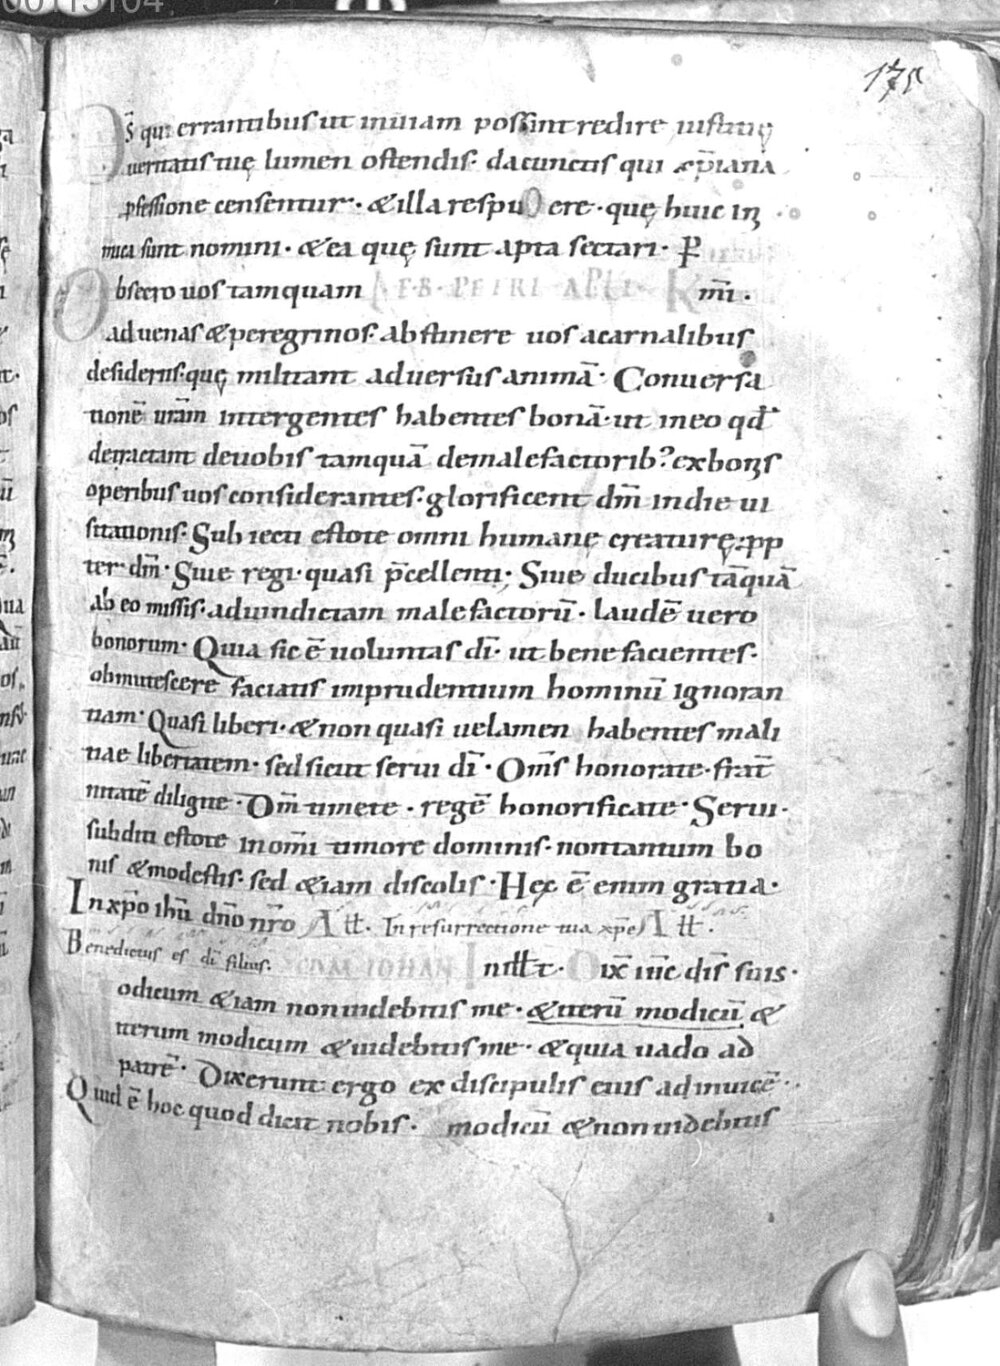 175
D̄s qui errantibus ut in uiam possint redire iustitię
ueritatis tuę lumen ostendis· da cunctis qui xp̄iana
p̱fessione censentur· & illa respuere· quę huic ini
mica sunt nomini· & ea quę sunt apta sectari· P̱
Obsecro uos tamquam EP̄ B· PETRI APLI· K m̄i·
aduenas & peregrinos· abstinere uos a carnalibus
desideriis· quę militant aduersus animā· Conuersa
tionē urām inter gentes habentes bonā· ut in eo qd̄
detractant de uobis tamquā de malefactorib? ex bonis
operibus uos considerantes· glorificent dm̄ in die ui
sitationis· Subiecti estote omni humanę creaturę· pp
ter dm̄· Siue regi· quasi p̄cellenti; Siue ducibus tāquā
ab eo missis· ad uindictam malefactorū· laudē uero
bonorum· Quia sic ē uoluntas dī· ut bene facientes·
obmutescere faciatis imprudentium hominū ignoran
tiam· Quasi liberi· & non quasi uelamen habentes mali
tiae libertatem· sed sicut serui dī· Om̄s honorate· frat̄
nitatē diligite· Dm̄ timete· regē honorificate· Serui·
subditi estote in om̄i timore dominis· non tantum bo
nis & modestis· sed & iam discolis· Hęc ē enim gratia·
In xp̄o ihū dn̄o nr̄o All̄· In resurrectione tua xp̄e All̄·
Benedictus es dī filius· SCDM IOHAN In ill̄ t̄· Dix̄ ih̄c dis̄ suis·
odicum & iam non uidebitis me· & iterū modicū &
iterum modicum & uidebitis me· & quia uado ad
patrē· Dixerunt ergo ex discipulis eius ad inuicē·
Quid ē hoc quod dicit nobis· modicū & non uidebitis